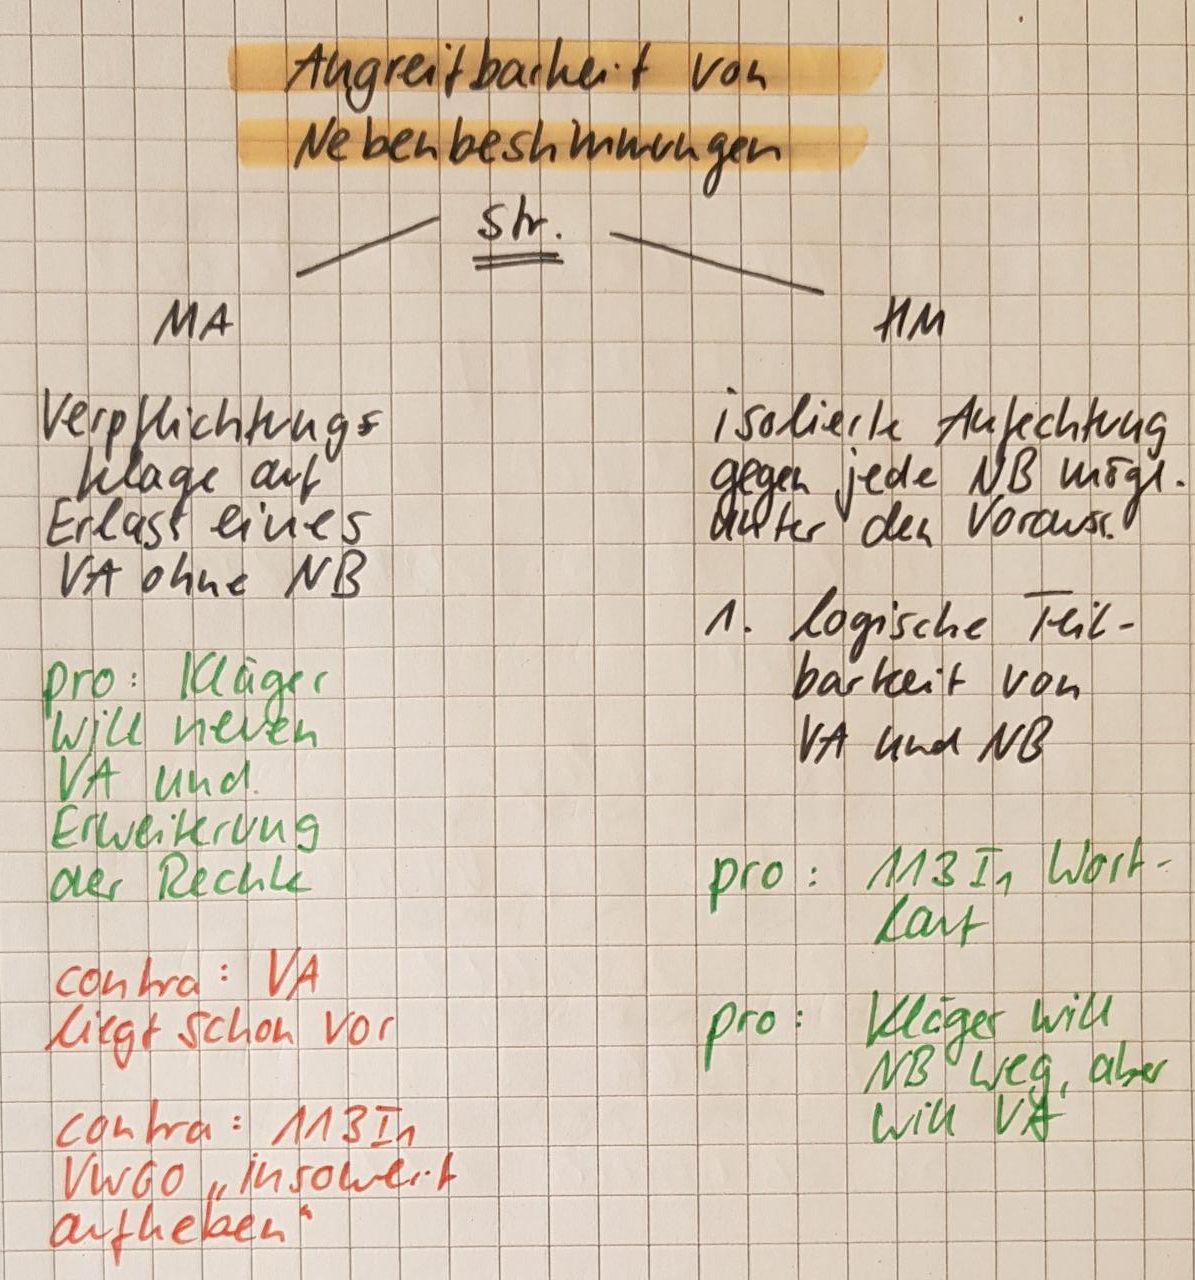 Angreifbarkeit von
Nebenbestimmungen
Str.
MA
Verpflichtungs
klage auf
Erlass eines
VA ohne NB
pro: Kläger
will neuen
VA und
Erweiterung
der Rechte
contra: VA
liegt schon vor
contra: 113 I 1
VwGO „insoweit
aufheben“
HM
isolierte Anfechtung
gegen jede NB mögl.
unter den Vorauss.
1. logische Teil-
barkeit von
VA und NB
pro: 113 I 1 Wort-
laut
pro: Kläger will
NB weg, aber
will VA